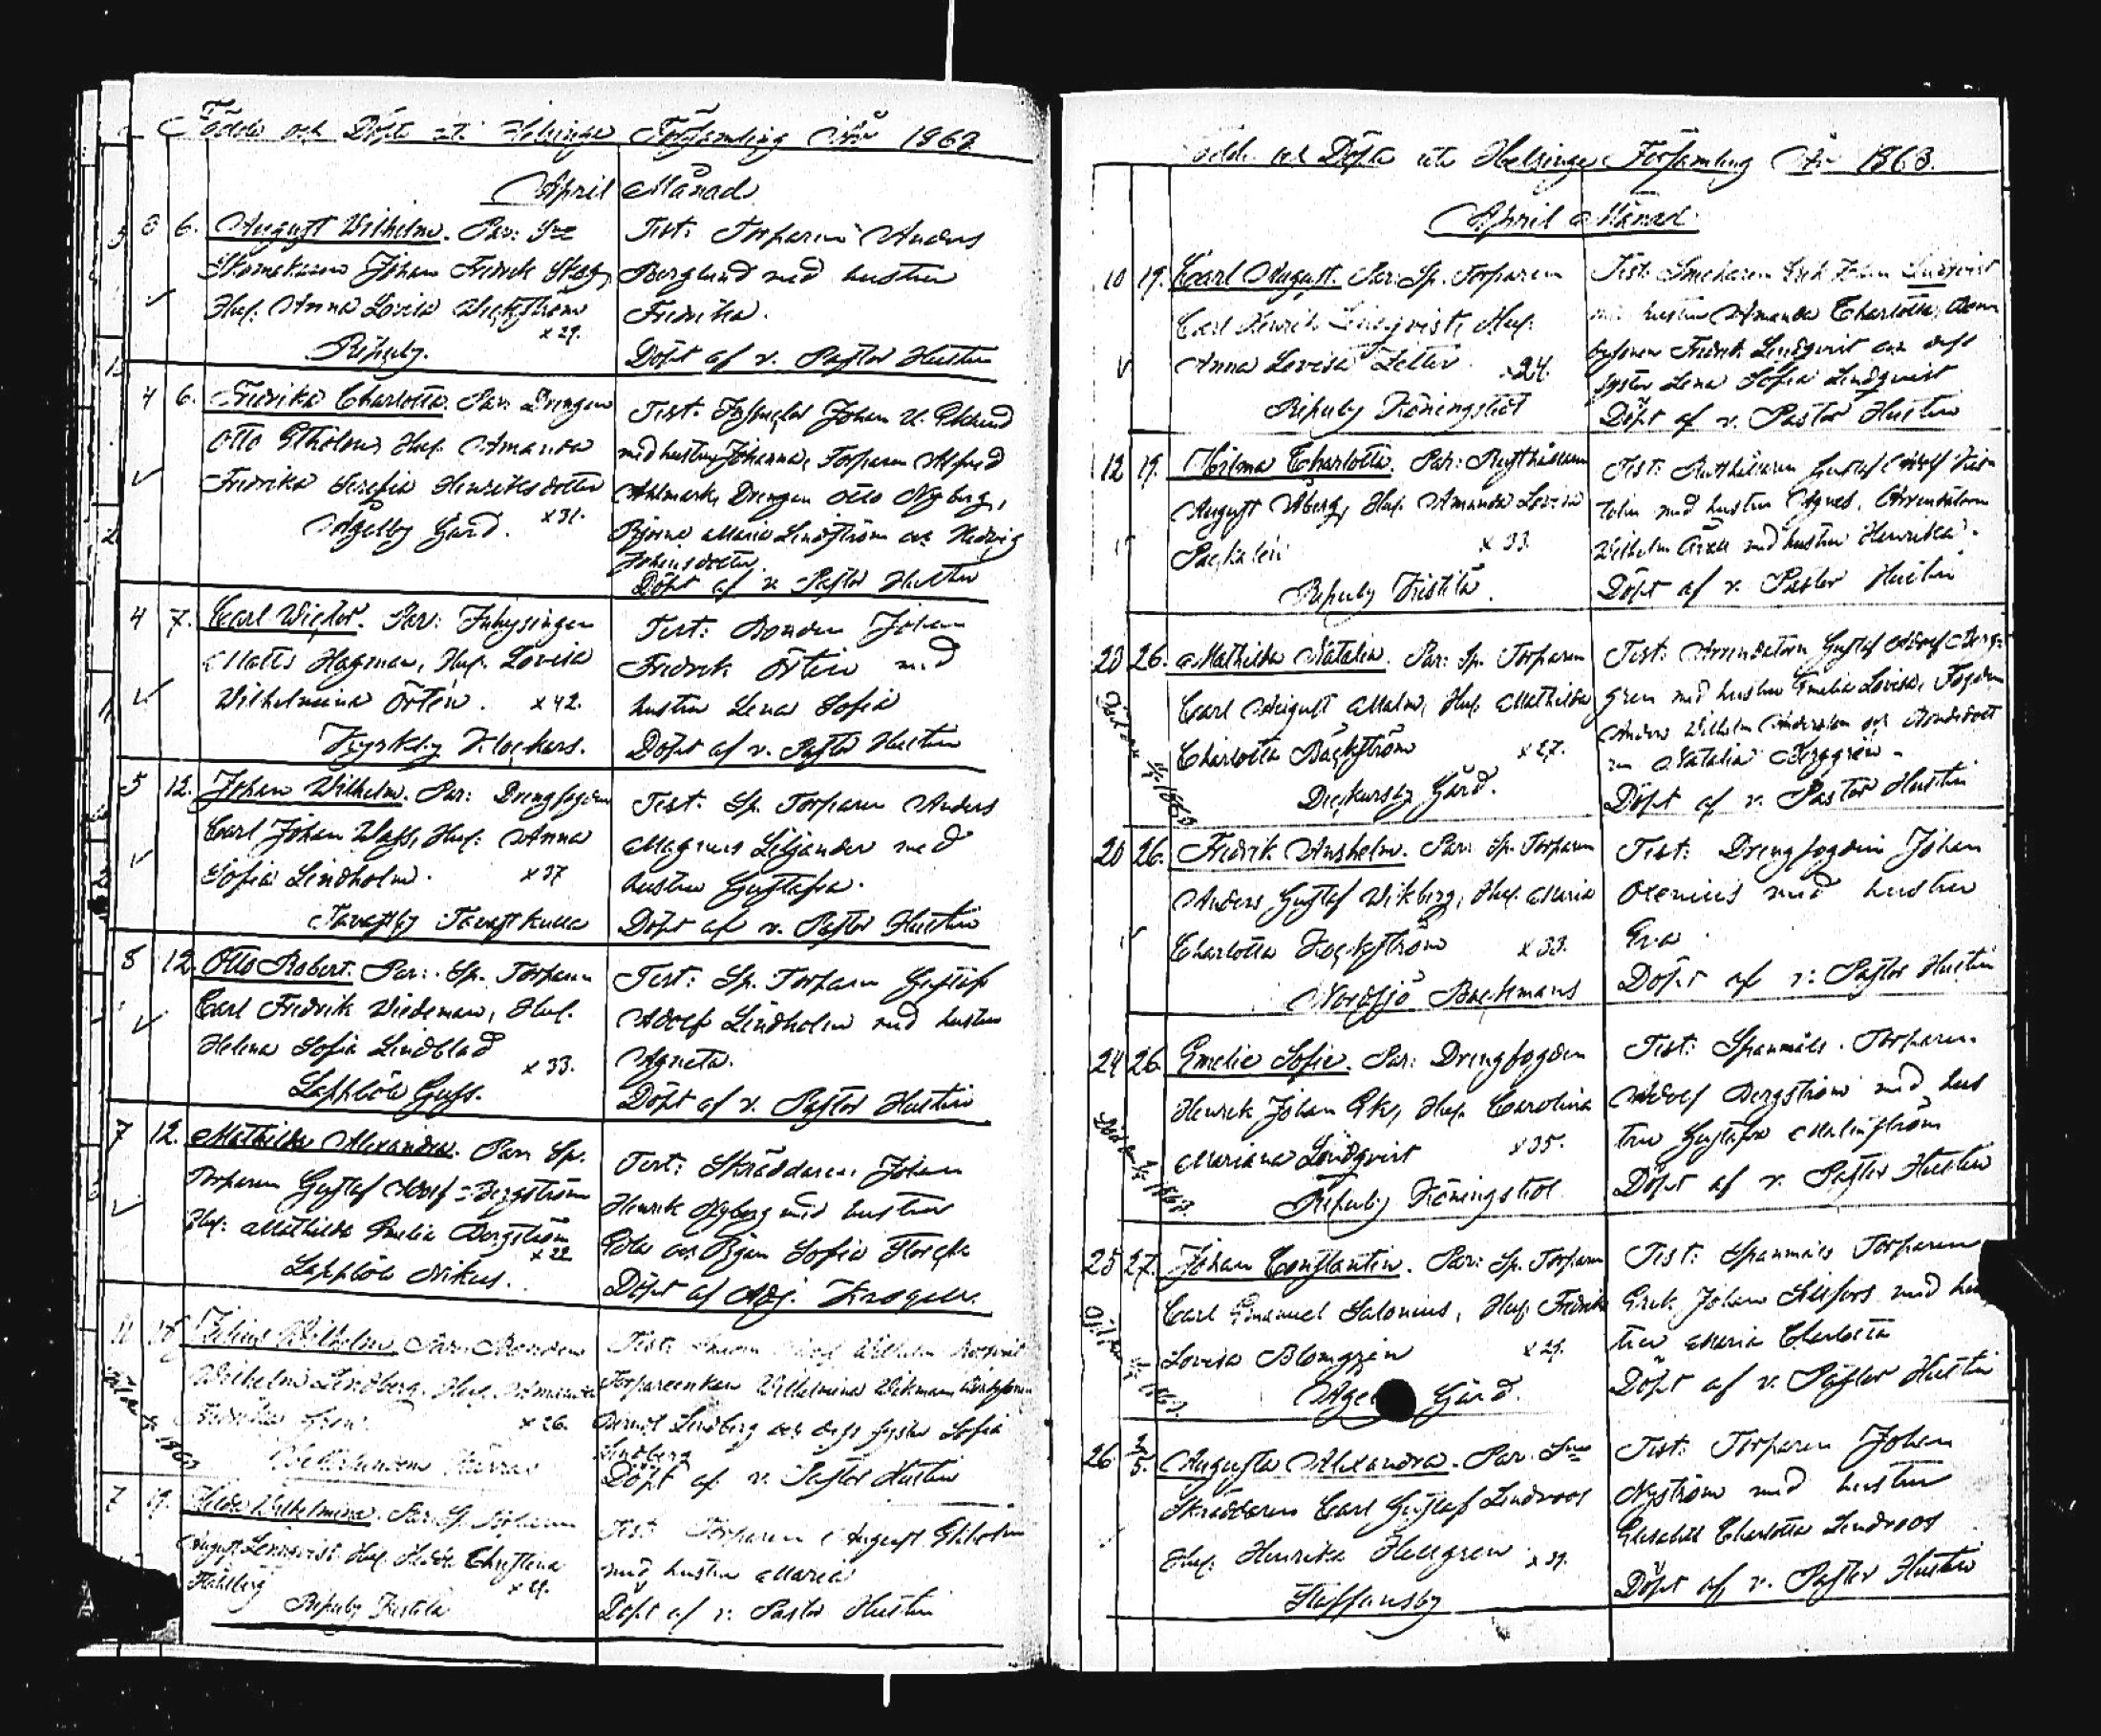 Födde och Döpte uti Helsinge Församling År 1863
April Månad
3 6. August Wilhelm. Par: Sve
Skomakaren Johan Fredrik Skog,
Hus. Anna Lovisa Weckström
x 29.
Ripuby.
Test: Torparen Anders
Berglund med hustru
Fredrika.
Döpt af v. Pastor Hustin
4 6. Fredrika Charlotta. Par: Drengen
Otto Ekholm, Hus. Amanda
Fredrika Serafia Henriksdotter
x 31.
Ågelby Gård.
Test: Johan U. Eklund
med hustru Johanna, Torparen Alfred
Ahlmark, Drengen Otto Nyberg,
Maria Lindström och Hedvig
Johansdotter.
Döpt af v. Pastor Hustin
4 7. Carl Victor. Par: Inhysingen
Matts Hagman, Hus. Lovisa
Wilhelmina Örtén. x 42.
Kyrkby Klockars.
Test: Bonden Johan
Fredrik Örtén med
hustru Lena Sofia
Döpt af v. Pastor Hustin
5 12. Johan Wilhelm. Par: Drengfogden
Carl Johan Wass, Hus: Anna
Sofia Lindholm. x 37
Tavastby Tavastkulla
Test: Sp. Torparen Anders
Magnus Liljander med
hustru Gustafva.
Döpt af v. Pastor Hustin
8 12. Otto Robert. Par: Sp. Torparen
Carl Fredrik Wideman, Hus.
Helena Sofia Lindblad
x 33.
Lappböle Guss.
Test: Sp. Torparen Gustaf
Adolf Lindholm med hustru
Agneta.
Döpt af v. Pastor Hustin
7 12. Mathilda Alexandra. Par: Sp.
Torparen Gustaf Adolf Bergström
Hus: Mathilda Emelia Bergström
x 22
Lappböle Nikus.
Test: Skräddaren Johan
Henrik Nyberg med hustru
Eva och Pigan Sofia
Döpt af Adj. Krogell.
11 Wilhelm. Par: Bonden
Wilhelm Lindberg, Hus. Amanda
Fredrika
x 26.
Test: Wilhelm
Torpareenkan Wilhelmina Wikman
Lindberg och dess syster Sofia
Lindberg
Döpt af v. Pastor Hustin
7 19. Hilda Wilhelmina. Par: Sp. Torparen
August Lönnqvist, Hus. Hedda Christina
Fahlberg x 29.
Ripuby Fristila
Test: Torparen August Ekholm
med hustru Maria
Döpt af v. Pastor Hustin
Födde och Döpta uti Helsinge Församling År 1863.
April Månad
10 19. Carl August. Par: Sp. Torparen
Carl Henrik Lindqvist, Hus.
Anna Lovisa Zetter x 24.
Ripuby Köningstedt
Test: Johan Lindqvist
med hustru Amanda Charlotta,
Fredrik Lindqvist och dess
syster Lena Sofia Lindqvist
Döpt af v. Pastor Hustin
12 19. Wilma Charlotta. Par: Rusthållaren
August Åberg, Hus. Amanda Lovisa
Packalén x 33.
Ripuby Fristila.
Test: Rusthållaren Gustaf Adolf
med hustru Agnes, Arrendatorn
Wilhelm med hustru Henrika.
Döpt af v. Pastor Hustin
20 26. Mathilda Natalia. Par: Sp. Torparen
Carl August Malm, Hus. Mathilda
Charlotta Bäckström x 27.
Dickursby Gård.
Test: Arrendatorn Gustaf Adolf Berg-
gren med hustru Emelia Lovisa, Fogden
Anders Wilhelm Andersson och Bondedott-
ren Natalia Berggren
Döpt af v. Pastor Hustin
20 26. Fredrik Anshelm. Par: Sp. Torparen
Anders Gustaf Wikberg, Hus. Maria
Charlotta x 33.
Nordsjö Backmans
Test: Drengfogden Johan
Oxenius med hustru
Eva.
Döpt af v. Pastor Hustin
24 26. Emelie Sofie. Par: Drengfogden
Henrik Johan Ek, Hus. Carolina
Mariana Lindqvist x 35.
Ripuby Köningstedt
Test: Spanmåls Torparen
Adolf Bergström med hus
tru Gustafva Malmström
Döpt af v. Pastor Hustin
25 27. Johan Constantin. Par: Sp. Torparen
Carl Emanuel Salonius, Hus. Fredrika
Lovisa Blomgren x 29.
Åge Gård.
Test: Spanmåls Torparen
Erik Johan Silfors med hus
tru Maria Charlotta
Döpt af v. Pastor Hustin
26 3/5. Augusta Alexandra. Par: Sve
Skräddaren Carl Gustaf Lindroos
Hus. Henrika Hellgren x 39.
Staffansby
Test: Torparen Johan
Nyström med hustru
Charlotta Lindroos
Döpt af v. Pastor Hustin